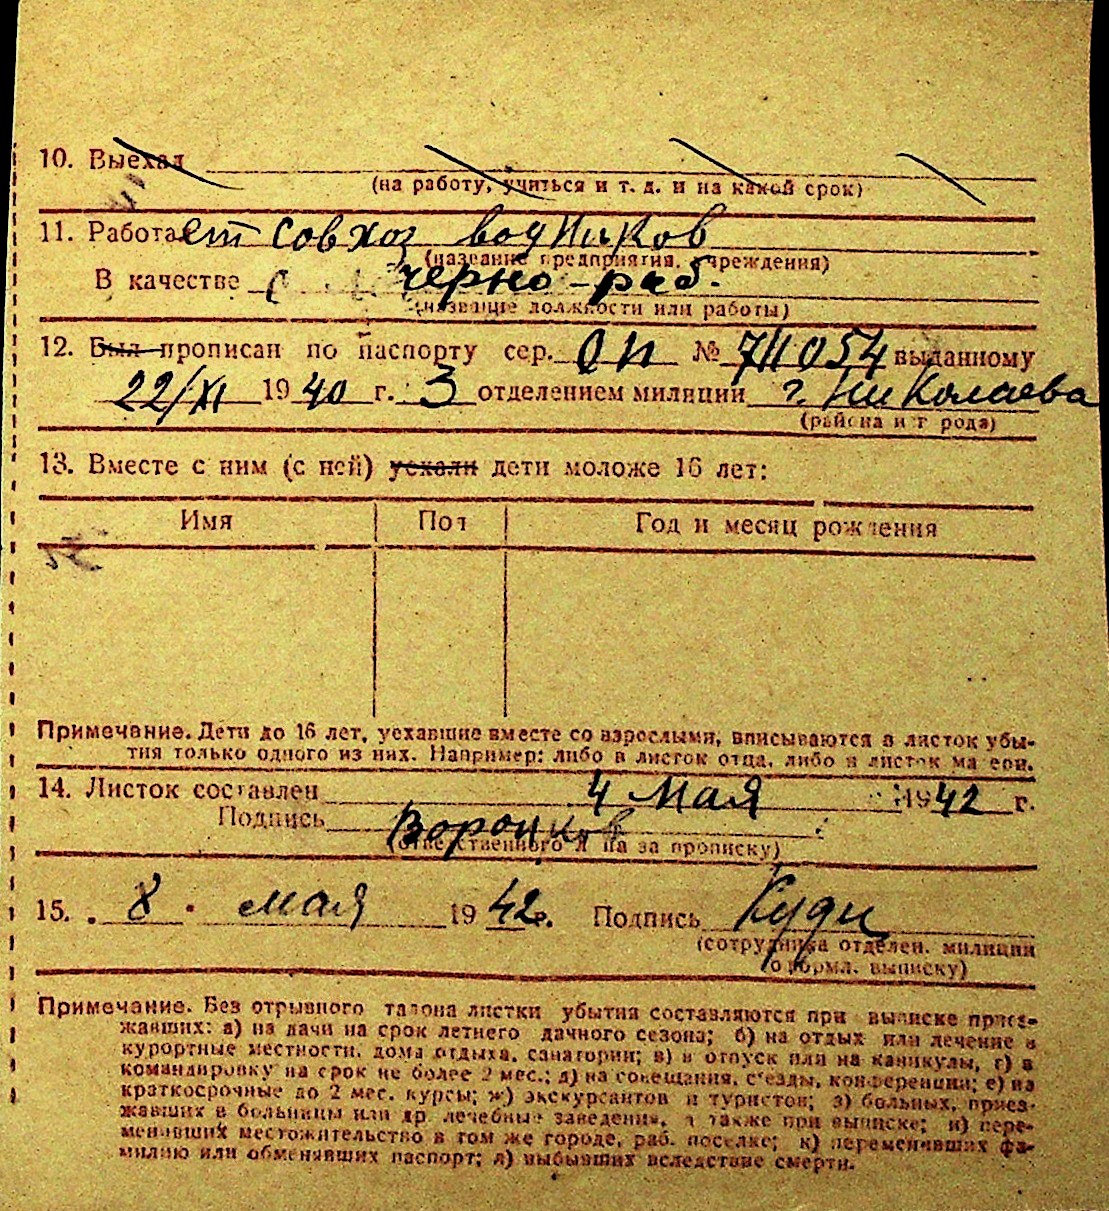 10. Выехал
(на работу, учиться и т. д. и на какой срок)
11. Работает совхоз водников
(название предприятия, учреждения)
В качестве черно-раб.
(название должности или работы)
12. Был прописан по паспорту сер. ОП № 711054 выданному
22/XI 1940 г. 3 отделением милиции г. Николаева
(района и города)
13. Вместе с ним (с ней) уехали дети моложе 16 лет:
Имя Пол Год и месяц рождения
Примечание. Дети до 16 лет, уехавшие вместе со взрослыми, вписываются в листок убы-
тия только одного из них. Например: либо в листок отца, либо в листок матери.
14. Листок составлен 4 мая 1942 г.
Подпись Воронков
(ответственного лица за прописку)
15. 8 мая 1942. Подпись
(сотрудника отделен. милиции
оформл. выписку)
Примечание. Без отрывного талона листки убытия составляются при выписке приез-
жавших: а) на дачи на срок летнего дачного сезона; б) на отдых или лечение в
курортные местности, дома отдыха, санатории; в) в отпуск или на каникулы, г) в
командировку на срок не более 2 мес.; д) на совещания, съезды, конференции; е) на
краткосрочные до 2 мес. курсы; ж) экскурсантов и туристов; з) больных, приез-
жавших в больницы или др. лечебные заведения, а также при выписке; и) пере-
менивших местожительство в том же городе, раб. поселке; к) переменивших фа-
милию или обменявших паспорт; л) выбывших вследствие смерти.